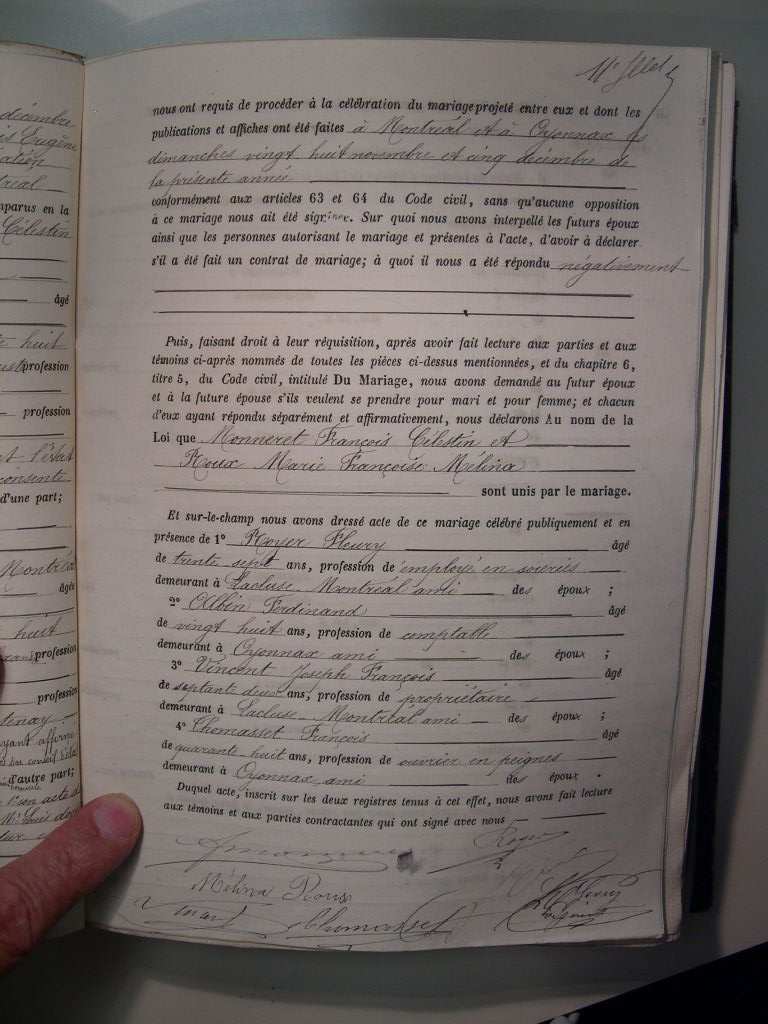 décembre
Eugène
nous ont requis de procéder à la célébration du mariage projeté entre eux et dont les
publications et affiches ont été faites à Montréal et à Oyonnax les
dimanches vingt huit novembre et cinq décembre de
la présente année
conformément aux articles 63 et 64 du Code civil, sans qu'aucune opposition
à ce mariage nous ait été signifiée. Sur quoi nous avons interpellé les futurs époux
ainsi que les personnes autorisant le mariage et présentes à l'acte, d'avoir à déclarer
s'il a été fait un contrat de mariage; à quoi il nous a été répondu négativement
Puis, faisant droit à leur réquisition, après avoir fait lecture aux parties et aux
témoins ci-après nommés de toutes les pièces ci-dessus mentionnées, et du chapitre 6,
titre 5, du Code civil, intitulé Du Mariage, nous avons demandé au futur époux
et à la future épouse s'ils veulent se prendre pour mari et pour femme; et chacun
d'eux ayant répondu séparément et affirmativement, nous déclarons Au nom de la
Loi que Monneret François Célestin et
Roux Marie Françoise Mélina
sont unis par le mariage.
Et sur-le-champ nous avons dressé acte de ce mariage célébré publiquement et en
présence de 1° Royer Fleury âgé
de trente sept ans, profession de employé en soieries
demeurant à Lacluse Montréal ami des époux ;
2° Albin Ferdinand âgé
de vingt huit ans, profession de comptable
demeurant à Oyonnax ami des époux ;
3° Vincent Joseph François âgé
de septante deux ans, profession de propriétaire
demeurant à Lacluse Montréal ami des époux ;
4° Chomasset François âgé
de quarante huit ans, profession de ouvrier en peignes
demeurant à Oyonnax ami des époux .
Duquel acte, inscrit sur les deux registres tenus à cet effet, nous avons fait lecture
aux témoins et aux parties contractantes qui ont signé avec nous
Mélina Roux
Chomasset